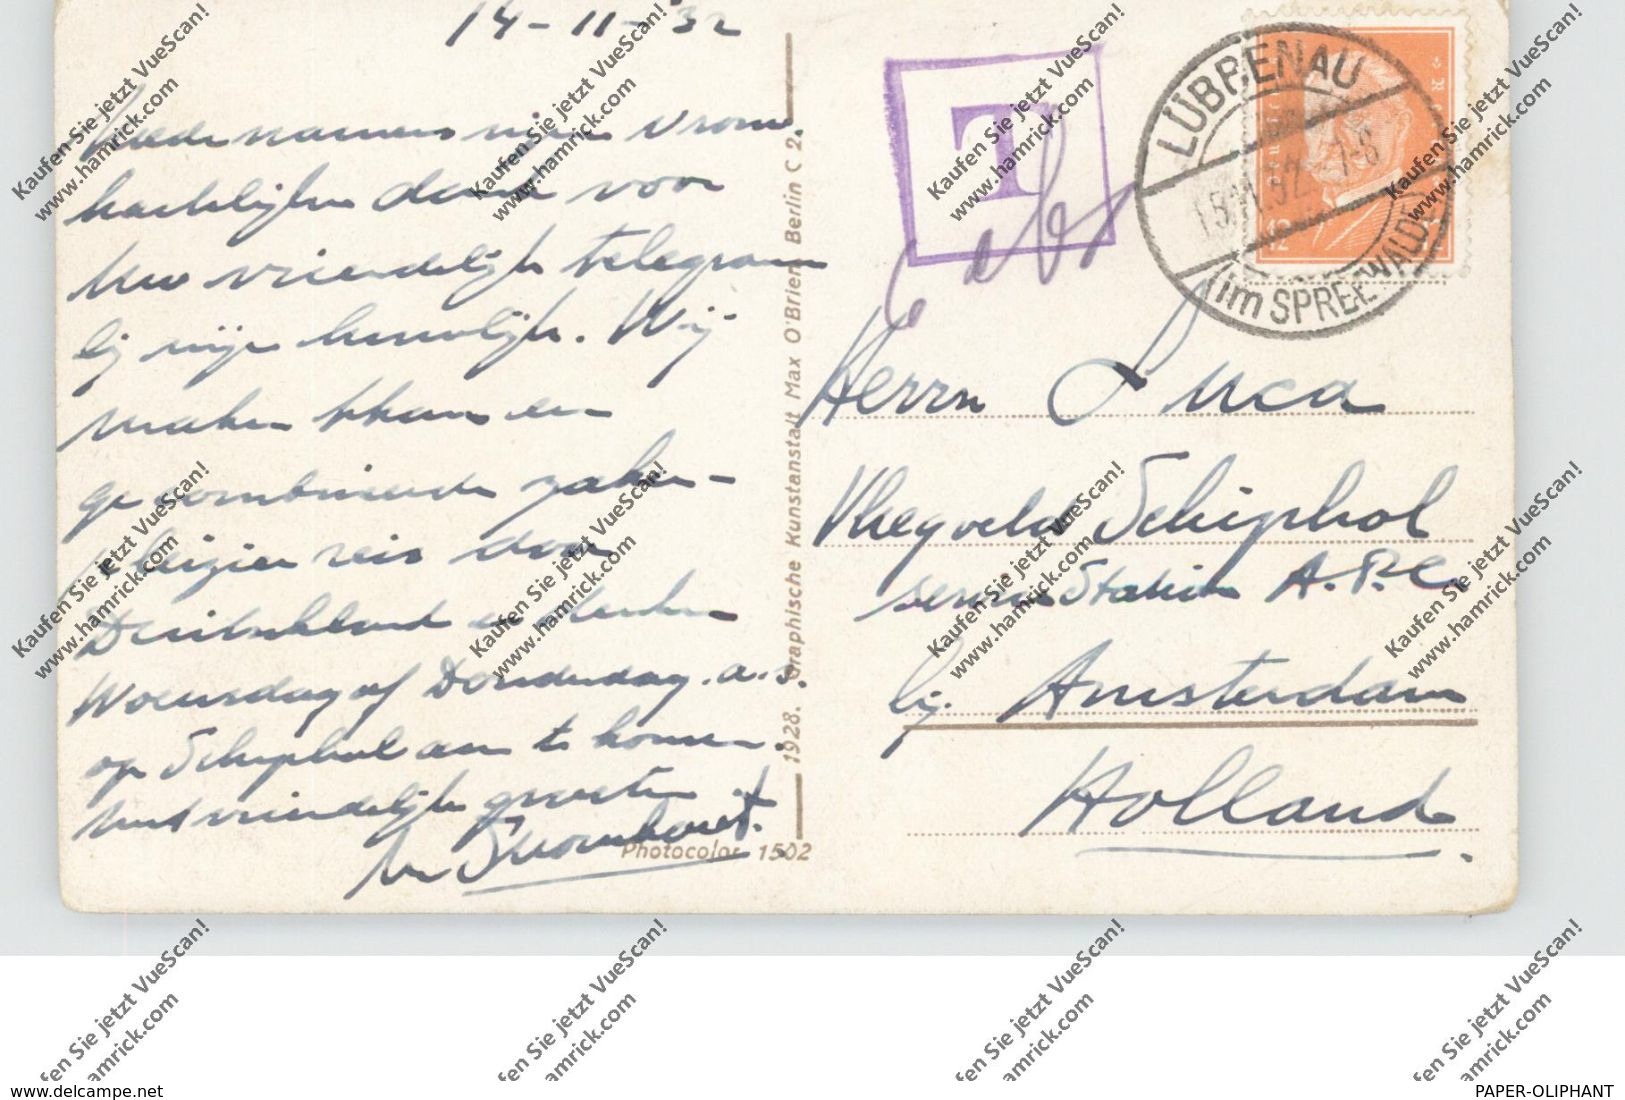 14-11-'32
Mede namens mijn vrouw
hartelijken dank voor
Uw vriendelijk telegram
bij mijn huwelijk. Wij
maken thans een
gecombineerde zaken-
pleizier reis door
Duitschland en denken
Woensdag of Donderdag a.s.
op Schiphol aan te komen.
met vriendelijke groeten
Photocolor 1502
1928. Graphische Kunstanstalt Max O'Brien, Berlin C 2.
T
LÜBBENAU
(im SPREEWALDE)
12
Herrn Luca
Vliegveld Schiphol
service Station A.P.C.
bij Amsterdam
Holland.
Kaufen Sie jetzt VueScan!
www.hamrick.com
www.delcampe.net
PAPER-OLIPHANT